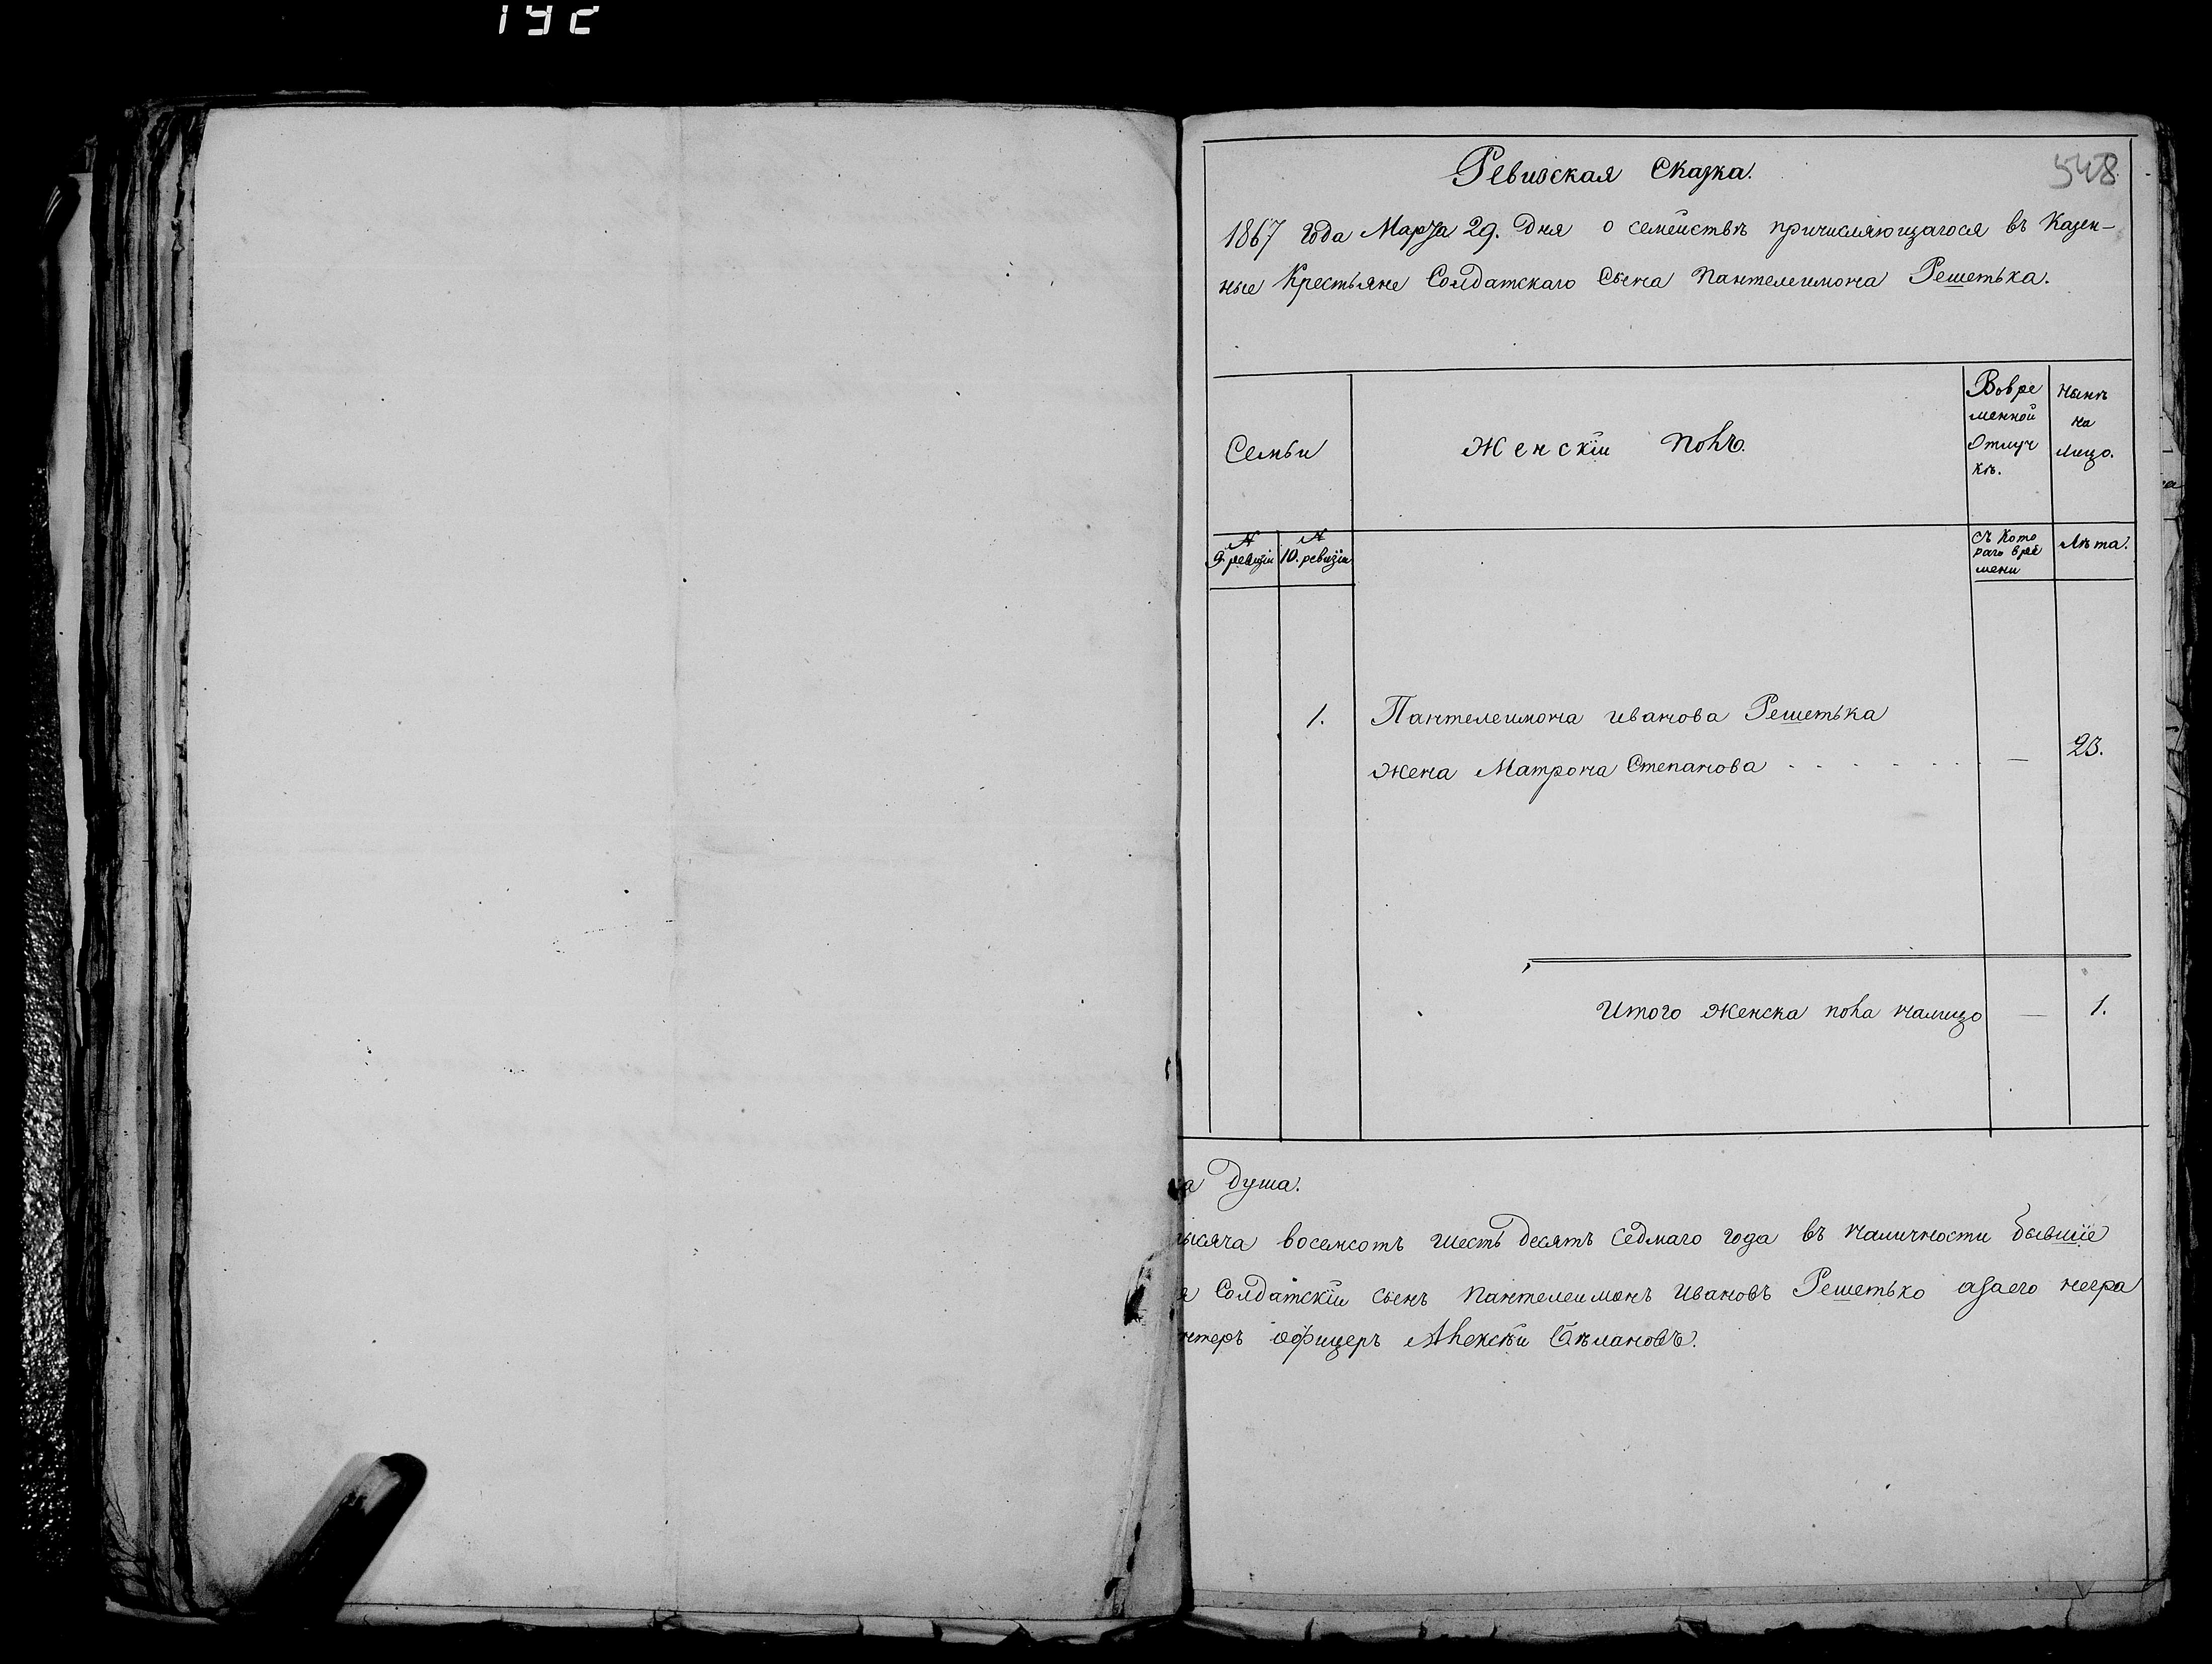 192
548
Ревизская Сказка.
1867 года Марта 29. Дня о семействѣ причисляющагося въ Казен-
ные Крестьяне Солдатскаго Сына Пантелеимона Решетька.
Семьи
Женскїи Полъ.
Вовре
менной
Отлуч
кѣ.
Нынѣ
на
лицо.
№ 9. ревизїи
№ 10. ревизїи
съ Кото
раго вре
мени
Лѣта.
1. Пантелеимона иванова Решетька
жена Матрона Степанова - - - - - - — 23.
Итого Женска пола налицо — 1.
а Душа.
тысяча восемсотъ шесть десятъ седмаго года въ наличности бывшїе
я Солдатскїи сынъ Пантелеимонъ Ивановъ Решетько азаего негра
нтеръ офицеръ Алексѣи